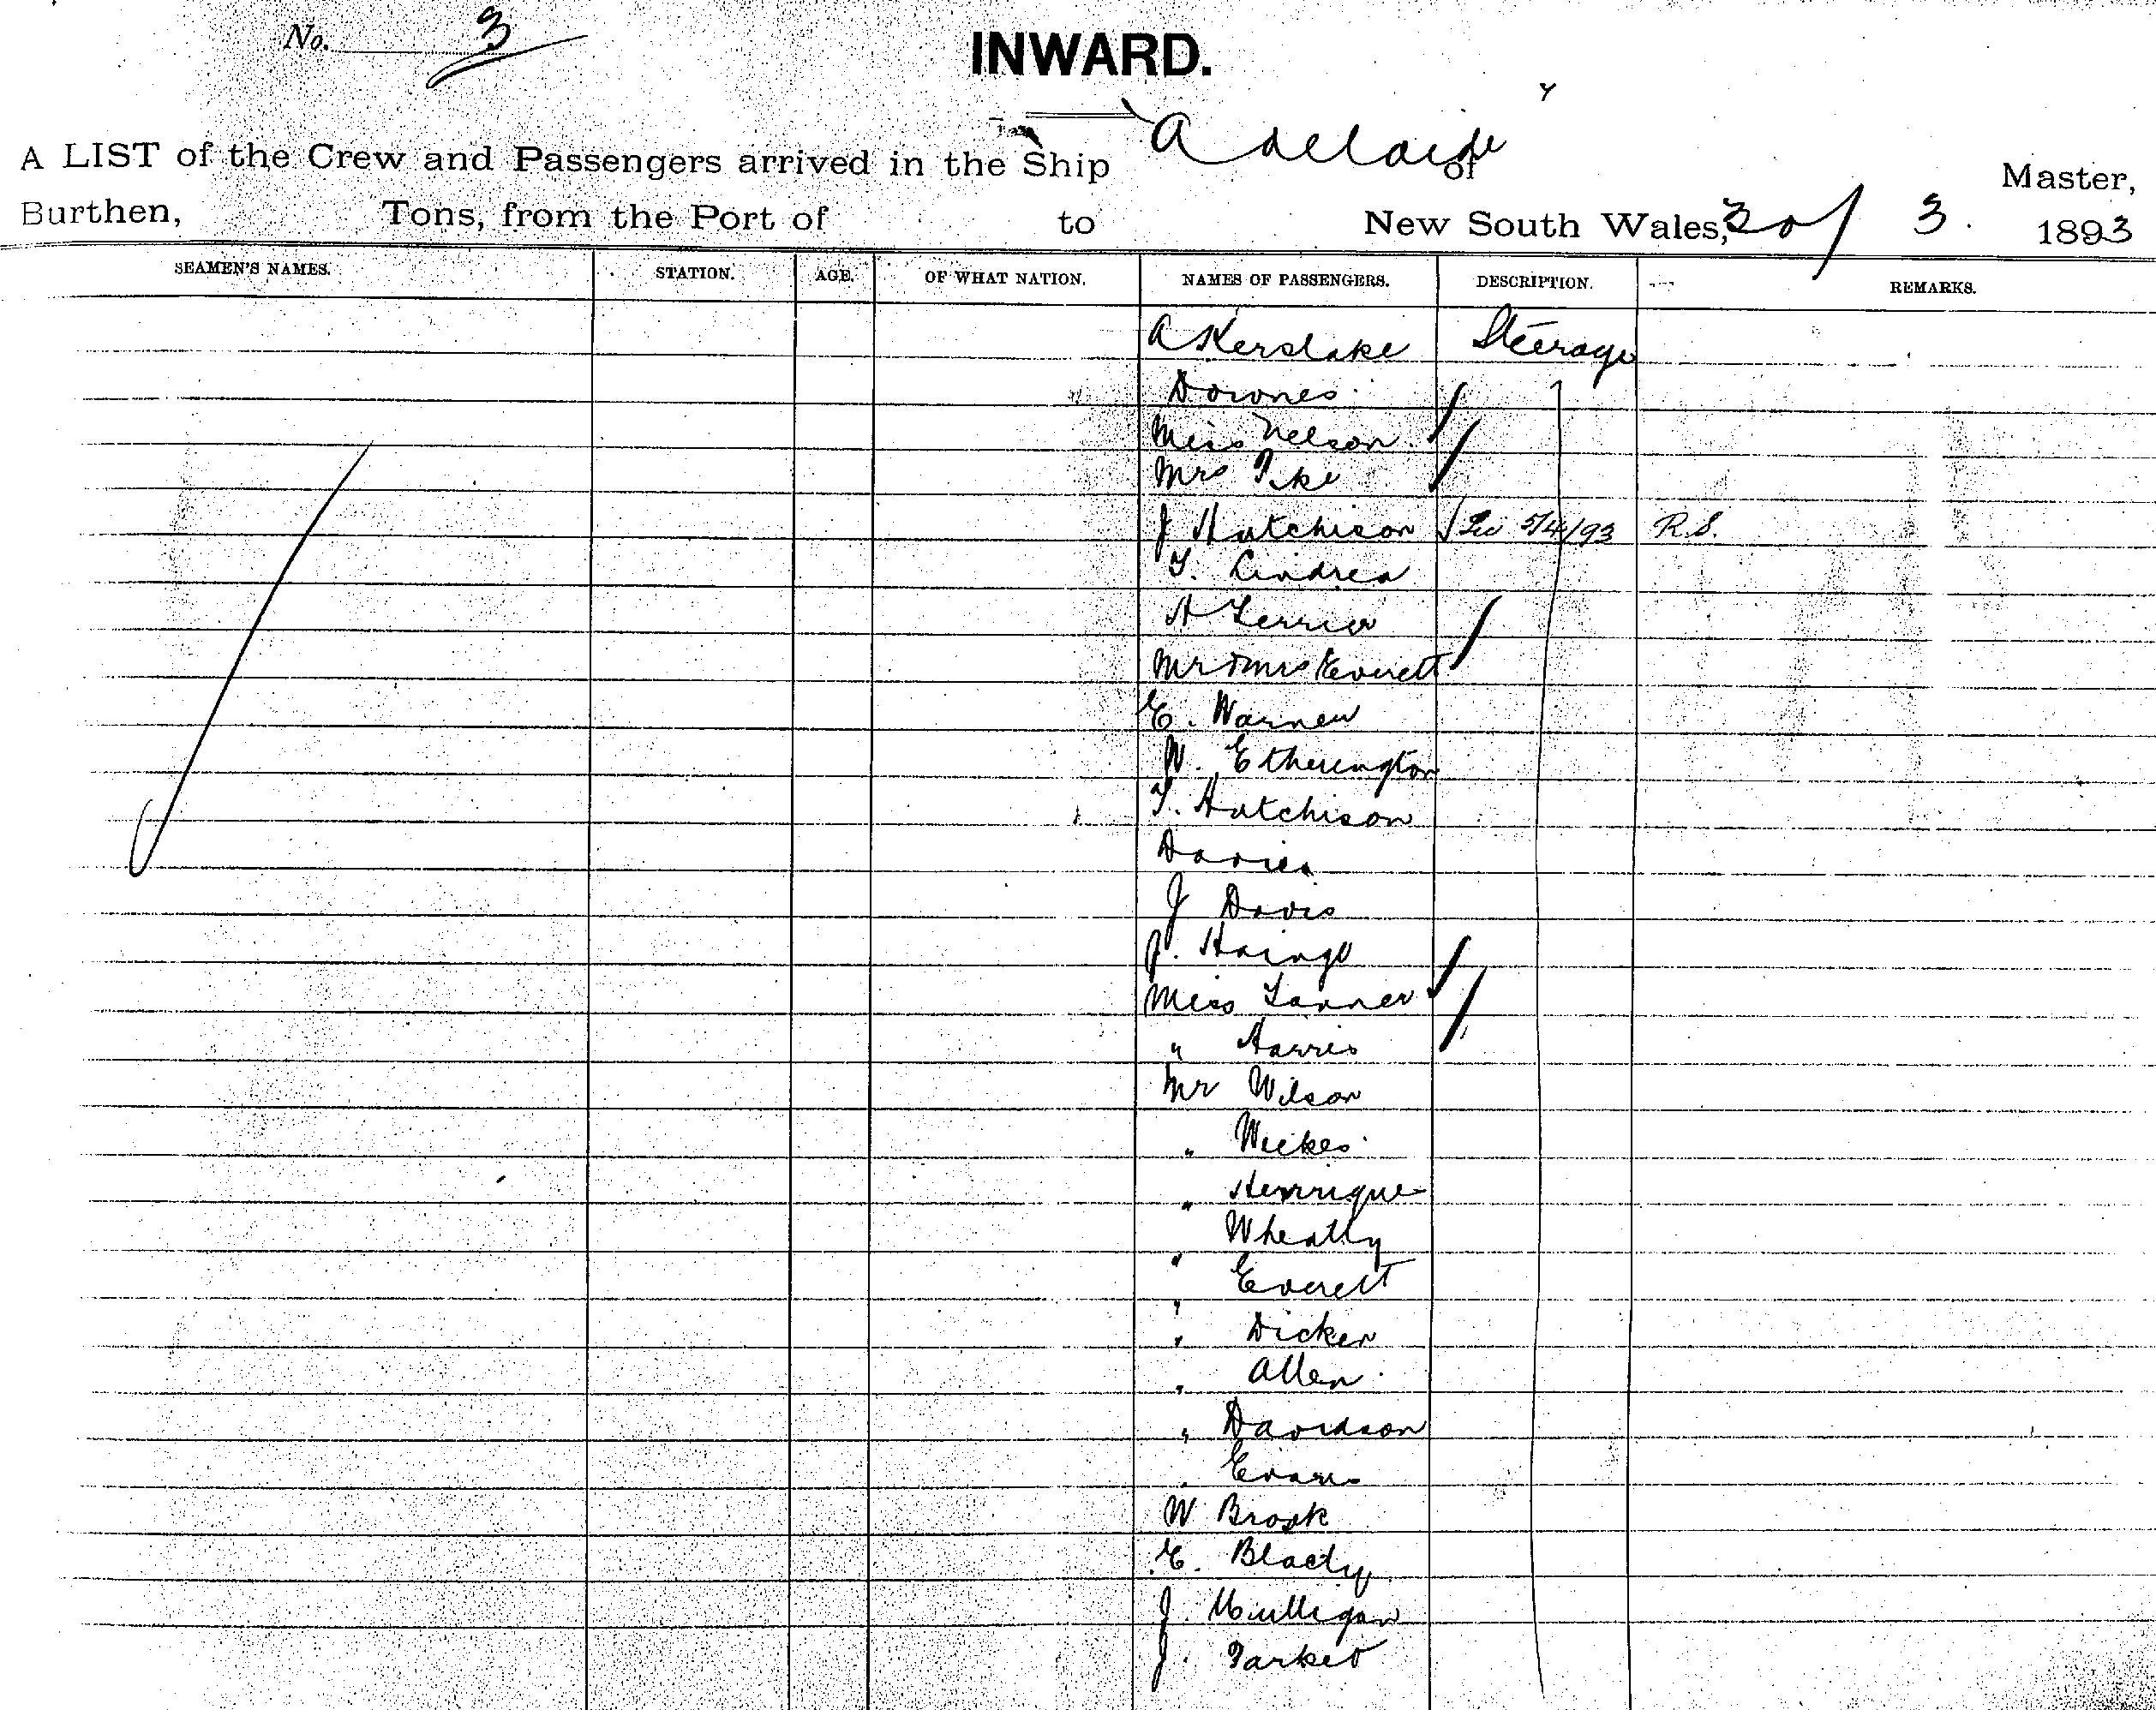 No. 3
INWARD.
A LIST of the Crew and Passengers arrived in the Ship Adelaide of Master,
Burthen, Tons, from the Port of to New South Wales, 30/3. 1893
SEAMEN'S NAMES. STATION. AGE. OF WHAT NATION. NAMES OF PASSENGERS. DESCRIPTION. REMARKS.
A Kerslake Steerage
Downes
Miss Nelson
Mrs Pike
J Hutchison 5/4/93 R.S.
T.
A
Mr & Mrs Everett
E. Warner
W. Etherington
T. Hutchison
Davies
J Davis
J.
Miss Tanner
" Harris
Mr Wilson
" Weekes
" Henrique
" Wheatly
" Everett
" Dicker
" Allen
" Davidson
" Evans
W Brook
E.
J. Mulligan
J. Parker